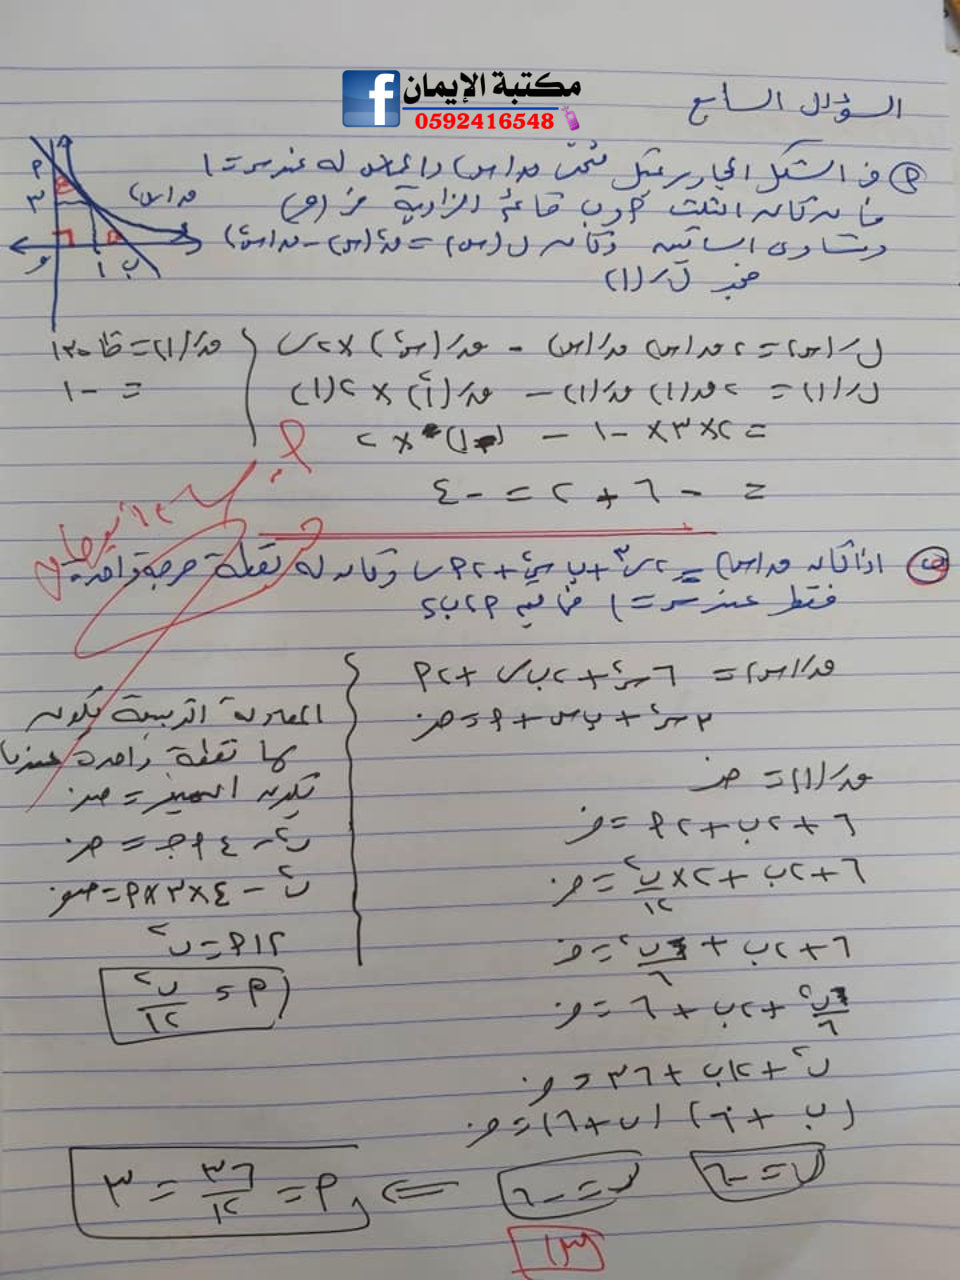 مكتبة الإيمان
0592416548
السؤال السابع
م
٣
و
١
ب
ق(س)
(م) في الشكل المجاور يمثل منحنى ق(س) والمماس له عند س = ١
فإذا كان المثلث م و ب قائم الزاوية في (و)
ومتساوي الساقين وكان ل(س) = ق²(س) - ق(س²)
جد ل/(١)
ل/(س) = ٢ ق(س) ق/(س) - ق/(س²) × ٢س
ل/(١) = ٢ ق(١) ق/(١) - ق/(١²) × ٢(١)
= ٢ × ٣ × -١ - (-١) × ٢
= -٦ + ٢ = -٤
ق/(١) = ظا ١٣٥
= -١
(ب) اذا كان ق(س) = ٢س³ + ب س² + ٢م س وكان له نقطة حرجة واحدة
فقط عند س = ١ فما قيم م، ب؟
ق/(س) = ٦س² + ٢ب س + ٢م
٣س² + ب س + م = صفر
ق/(١) = صفر
٦ + ٢ب + ٢م = صفر
٦ + ٢ب + ٢ × ب²/١٢ = صفر
٦ + ٢ب + ب²/٦ = صفر
ب²/٦ + ٢ب + ٦ = صفر
ب² + ١٢ب + ٣٦ = صفر
(ب + ٦) (ب + ٦) = صفر
ب = -٦ ب = -٦ ⇐ م = ٣٦/١٢ = ٣
المعادلة التربيعية يكون
لها نقطة واحدة عندما
يكون المميز = صفر
ب² - ٤ م جـ = صفر
ب² - ٤ × ٣ × م = صفر
١٢م = ب²
م = ب²/١٢
١٣